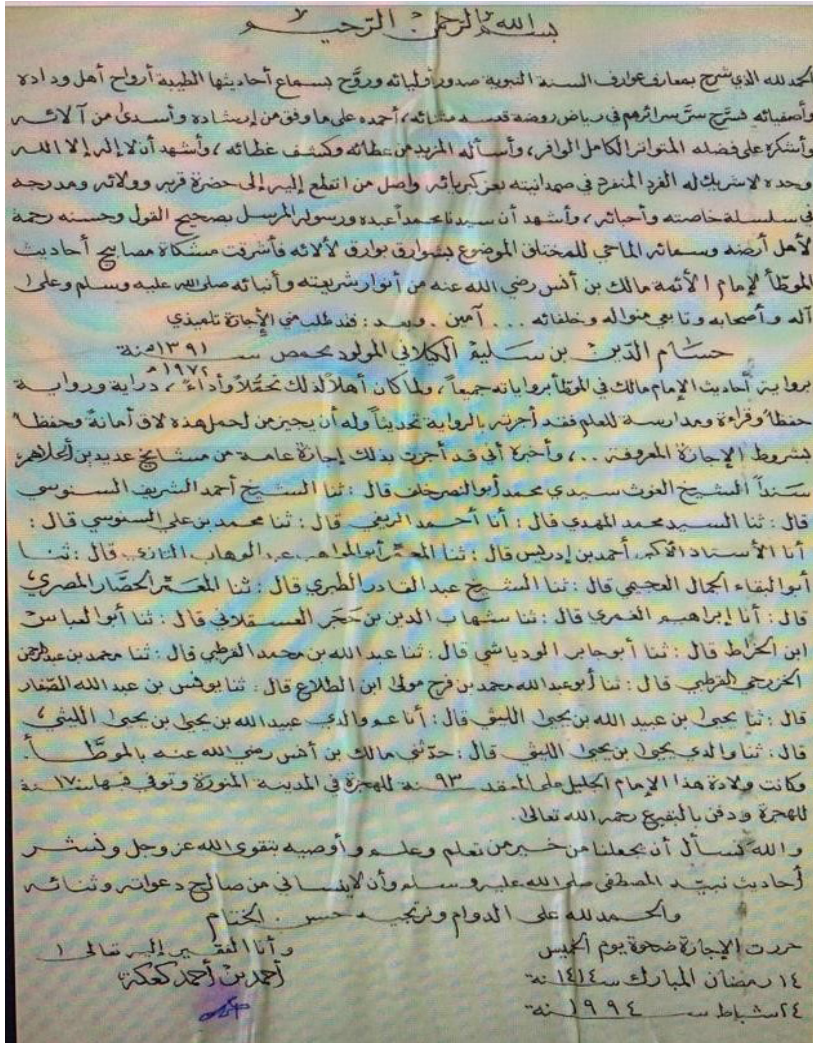 بسم الله الرحمن الرحيم
الحمد لله الذي شرح بمعارف عوارف السنة النبوية صدور أوليائه وروَّح بسماع أحاديثها الطيبة أرواح أهل وداده
وأصفيائه فسرَّح سرَّ سرائرهم في رياض روضة قدسه وثنائه، أحمده على ما وفق من إرشاده وأسدى من آلائه
وأشكره على فضله المتواتر الكامل الوافر، وأسأله المزيد من عطائه وكشف غطائه، وأشهد أن لا إله إلا الله
وحده لا شريك له الفرد المنفرد في صمدانيته بعز كبريائه واصل من انقطع إليه إلى حضرة قربه وولائه ومدرجه
في سلسلة خاصته وأحبائه، وأشهد أن سيدنا محمداً عبده ورسوله المرسل بصحيح القول وحسنه رحمة
لأهل أرضه وسمائه الماحي للمختلق الموضوع بشوارق بوارق لألائه فأشرقت مشكاة مصابيح أحاديث
الموطّأ لإمام الأئمة مالك بن أنس رضي الله عنه من أنوار شريعته وأنبائه صلى الله عليه وسلم وعلى
آله وأصحابه وتابعي منواله وخلفائه ... آمين . وبعد : فقد طلب مني الإجازة تلميذي
حسام الدين بن سليم الكيلاني المولود بحمص سنة ١٣٩١هـ
١٩٧٢م
برواية أحاديث الإمام مالك في الموطأ برواياته جميعاً، ولما كان أهلاً لذلك تحمُّلاً وأداءً، دراية ورواية
حفظاً وقراءة ومدارسة للعلم فقد أجزته بالرواية تحديثاً وله أن يجيز من لحمل هذه لاق أمانةً وحفظاً
بشروط الإجازة المعروفة ..، وأخبره أني قد أجزت بذلك إجازة عامة من مشايخ عديدين أعلاهم
سنداً الشيخ الغوث سيدي محمد أبو النصر خلف قال : ثنا الشيخ أحمد الشريف السنوسي
قال : ثنا السيد محمد المهدي قال : أنا أحمد الريفي قال : ثنا محمد بن علي السنوسي قال :
أنا الأستاذ الأكبر أحمد بن إدريس قال : ثنا المعمّر أبو المواهب عبد الوهاب التازي قال : ثنا
أبو البقاء الجمال العجيمي قال : ثنا الشيخ عبد القادر الطبري قال : ثنا المعمّر الحصّار المصري
قال : أنا إبراهيم الغمري قال : ثنا شهاب الدين بن حَجَر العسقلاني قال : ثنا أبو العباس
ابن الخراط قال : ثنا أبو جابر الودياشي قال : ثنا عبد الله بن محمد القرطبي قال : ثنا محمد بن عبد الرحمن
الخزرجي القرطبي قال : ثنا أبو عبد الله محمد بن فرج مولى ابن الطلاع قال : ثنا يونس بن عبد الله الصفار
قال : ثنا يحيى بن عبيد الله بن يحيى الليثي قال : أنا عم والدي عبيد الله بن يحيى بن يحيى الليثي،
قال : ثنا والدي يحيى بن يحيى الليثي قال : حدّثني مالك بن أنس رضي الله عنه بالموطّأ .
وكانت ولادة هذا الإمام الجليل على المعتمد ٩٣ سنة للهجرة في المدينة المنورة وتوفي فيها سنة ١٧٠
للهجرة ودفن بالبقيع رحمه الله تعالى .
والله نسأل أن يجعلنا من خير من تعلم وعلم وأوصيه بتقوى الله عز وجل ونشر
أحاديث نبيّه المصطفى صلى الله عليه وسلم وأن لا ينساني من صالح دعواته وثنائه
والحمد لله على الدوام ونرتجيه حسن الختام
حررت الإجازة ضحوة يوم الخميس
١٤ رمضان المبارك سنة ١٤١٤
٢٤ شباط سنة ١٩٩٤
وأنا الفقير إليه تعالى
أحمد بن أحمد كعكة